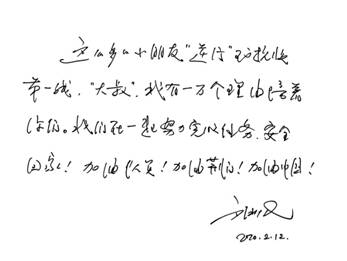 这么多的小朋友"逆行"到抗疫
第一线,"大叔",我有一万个理由陪着
你们。我们在一起努力完成任务,安全
回家!加油队员!加油荆门!加油中国!
2020.2.12.